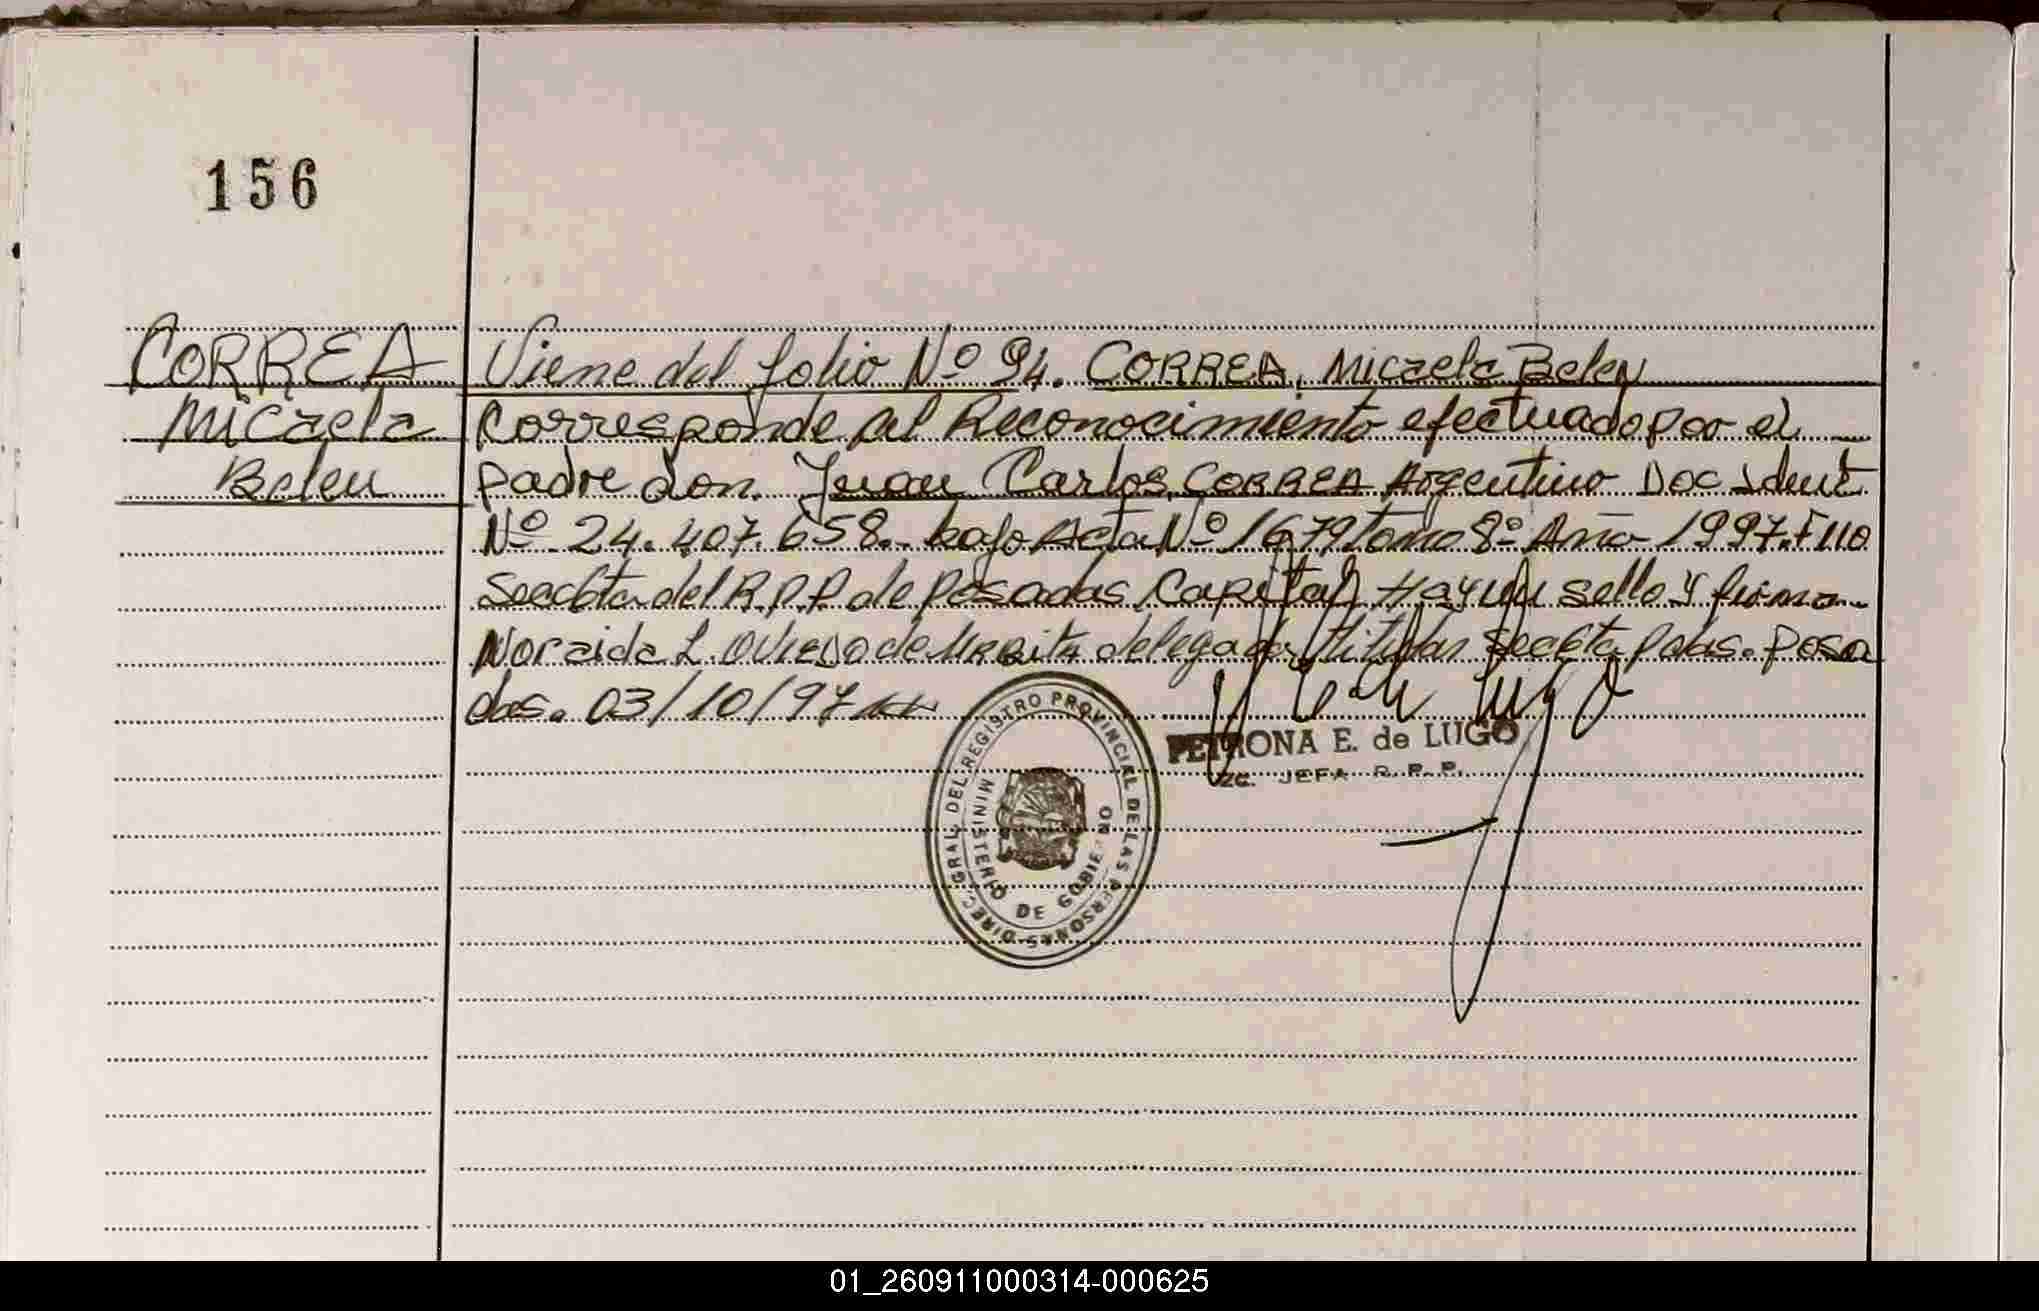 156
CORREA
Micaela
Belen
Viene del folio Nº 94. CORREA, Micaela Belen
Corresponde al Reconocimiento efectuado por el
padre don. Juan Carlos CORREA Argentino Doc Ident
Nº 24.407.658.- bajo Acta Nº 1679 tomo 8º Año 1997. Fº 110
Seccbta del R.P.P. de Posadas Capital Hay un sello y firma.
Noraida L. Oviedo de Urbita delegada titular Seccbta Pdas. Posa
das. 03/10/97
PETRONA E. de LUGO
JEFA R.P.P.
DIREC. GRAL. DEL REGISTRO PROVINCIAL DE LAS PERSONAS
MINISTERIO DE GOBIERNO
01_260911000314-000625